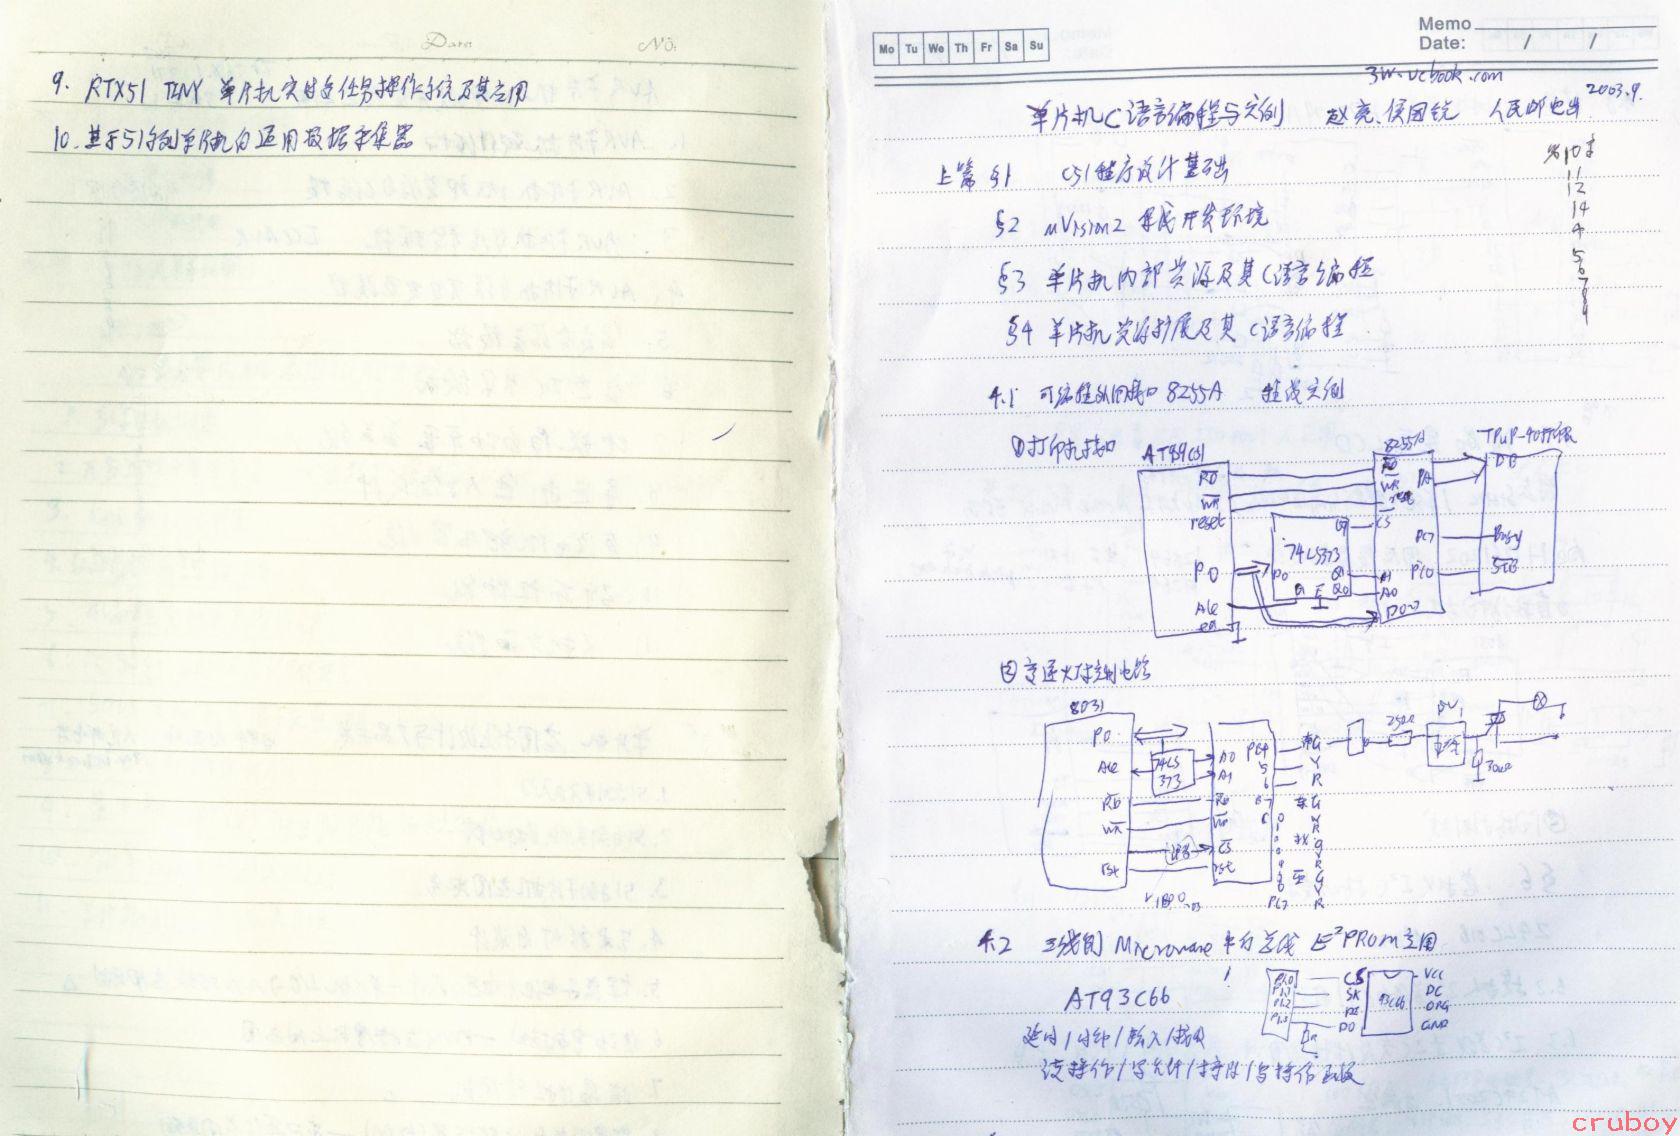 Date No:
9. RTX51 TINY 单片机实时多任务操作系统及其应用
10. 基于51系列单片机的通用数据采集器
Mo Tu We Th Fr Sa Su
Memo
Date: / /
3w.vcbook.com
单片机C语言编程与实例 赵亮、侯国锐 人民邮电出 2003.9.
上篇 §1 C51程序设计基础
§2 uVision2 集成开发环境
§3 单片机内部资源及其C语言编程
§4 单片机资源扩展及其C语言编程
第10章
11
12
14
4
5
6
7
8
9
4.1 可编程外围接口 8255A 接线实例
①打印机接口 AT89C51 8255A TPuP-40打印机
RD
WR
reset
P0
ALE
EA
74LS373
D0
Q7
G E
Q1
Q0
RD
WR
reset
CS
A1
A0
D0-7
PA
PC7
PC0
DB
Busy
STB
②交通灯控制电路
8031
P0
ALE
RD
WR
Rst
74LS
373
A0
A1
RD
WR
CS
rst
PC7
东 G
Y
R
南 G
Y
R
西 G
Y
R
北 G
Y
R
4.2 三线制 Microware 串行总线 E²PROM应用
AT93C66
P1.0
P1.1
P1.2
P1.3
CS
SK
DI
DO
93C66
VCC
DC
ORG
GND
延时/时钟/输入/输出
读操作/写允许/擦除/写操作函数
cruboy